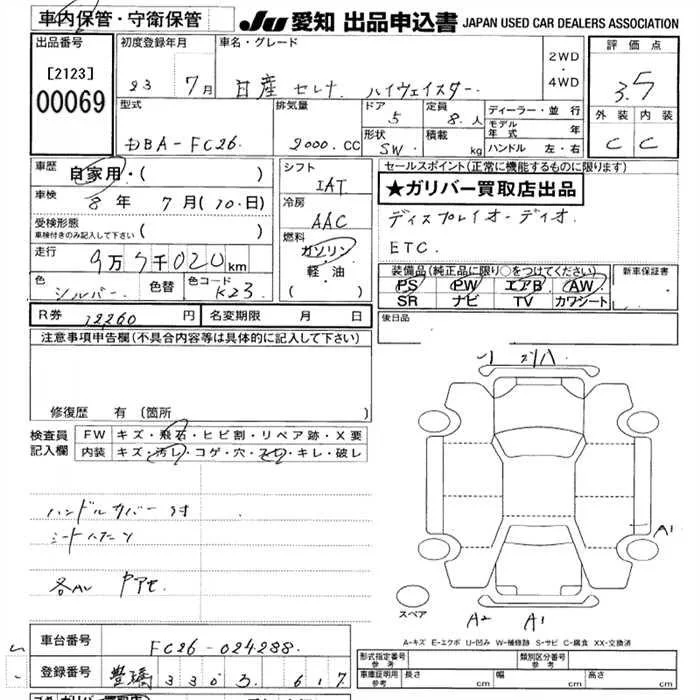 車内保管・守衛保管
JU 愛知 出品申込書 JAPAN USED CAR DEALERS ASSOCIATION
出品番号
[2123]
00069
初度登録年月
23 7月
車名・グレード
日産 セレナ ハイウェイスター
2WD・4WD
評価点
3.5
外装 内装
C C
型式
DBA-FC26
排気量
2000.CC
ドア
5
形状
SW
定員
8.人
積載
kg
ディーラー・並行
モデル年式 年
ハンドル 左・右
車歴
自家用・( )
車検
8年 7月(10.日)
受検形態
車検付きのみ記入して下さい
( )
走行
9万 5千020km
色
シルバー
色替
色コード
K23
シフト
IAT
冷房
AAC
燃料
ガソリン・
軽・油
( )
セールスポイント(正常に機能するものに限ります)
★ガリバー買取店出品
ディスプレイオーディオ
ETC.
装備品(純正品に限り○をつけてください)
PS PW エアB AW
SR ナビ TV カワシート
新車保証書
後日品
R券 12260 円
名変期限 月 日
注意事項申告欄(不具合内容等は具体的に記入して下さい)
修復歴 有(箇所
検査員記入欄
FW キズ・飛石・ヒビ割・リペア跡・X要
内装 キズ・汚レ・コゲ・穴・スレ・キレ・破レ
ハンドルカバー付
A1
スペア
A2 A1
A-キズ E-エクボ U-凹み W-補修跡 S-サビ C-腐食 XX-交換済
車台番号 FC26-024288
登録番号 豊橋 330 617
形式指定番号 参考
類別区分番号 参考
車庫証明用 参考 長さ cm 幅 cm 高さ cm
ガリバー買取店